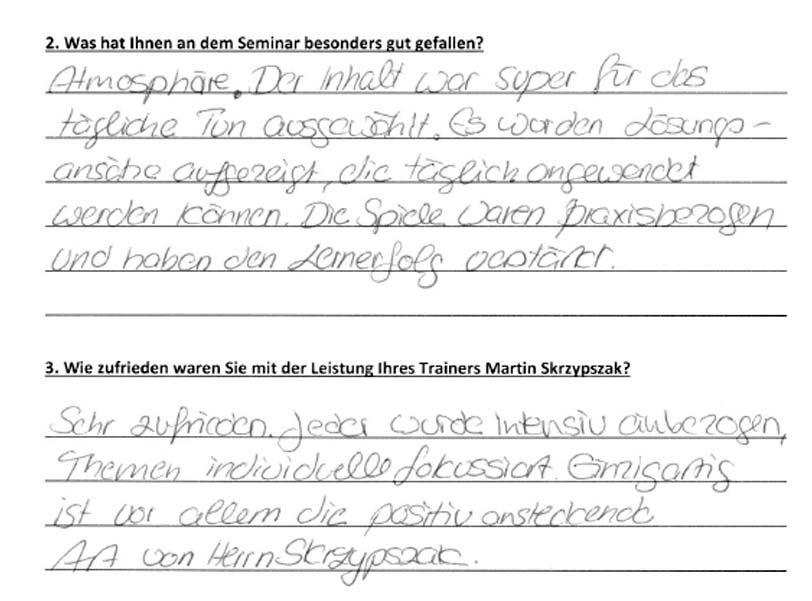 2. Was hat Ihnen an dem Seminar besonders gut gefallen?
Atmosphäre. Der Inhalt war super für das
tägliche Tun ausgewählt. Es wurden Lösungs-
ansätze aufgezeigt, die täglich angewendet
werden können. Die Spiele waren praxisbezogen
und haben den Lernerfolg verstärkt.
3. Wie zufrieden waren Sie mit der Leistung Ihres Trainers Martin Skrzypszak?
Sehr zufrieden. Jeder wurde intensiv einbezogen,
Themen individuelle fokussiert. Einzigartig
ist vor allem die positiv ansteckende
AA von Herrn Skrzypszak.